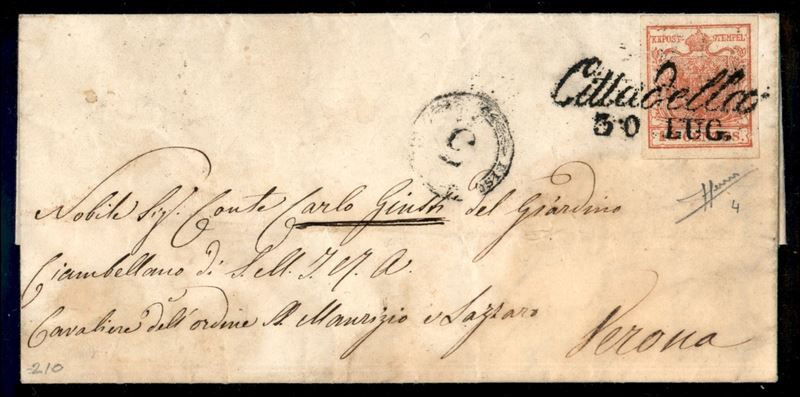 KKPOST-STEMPEL
Cittadella
30 LUG.
5
Nobile Sig.r Conte Carlo Giusti del Giardino
Ciambellano di S.M.I.R.A.
Cavaliere dell'ordine S. Maurizio e Lazzaro
Verona
4
210